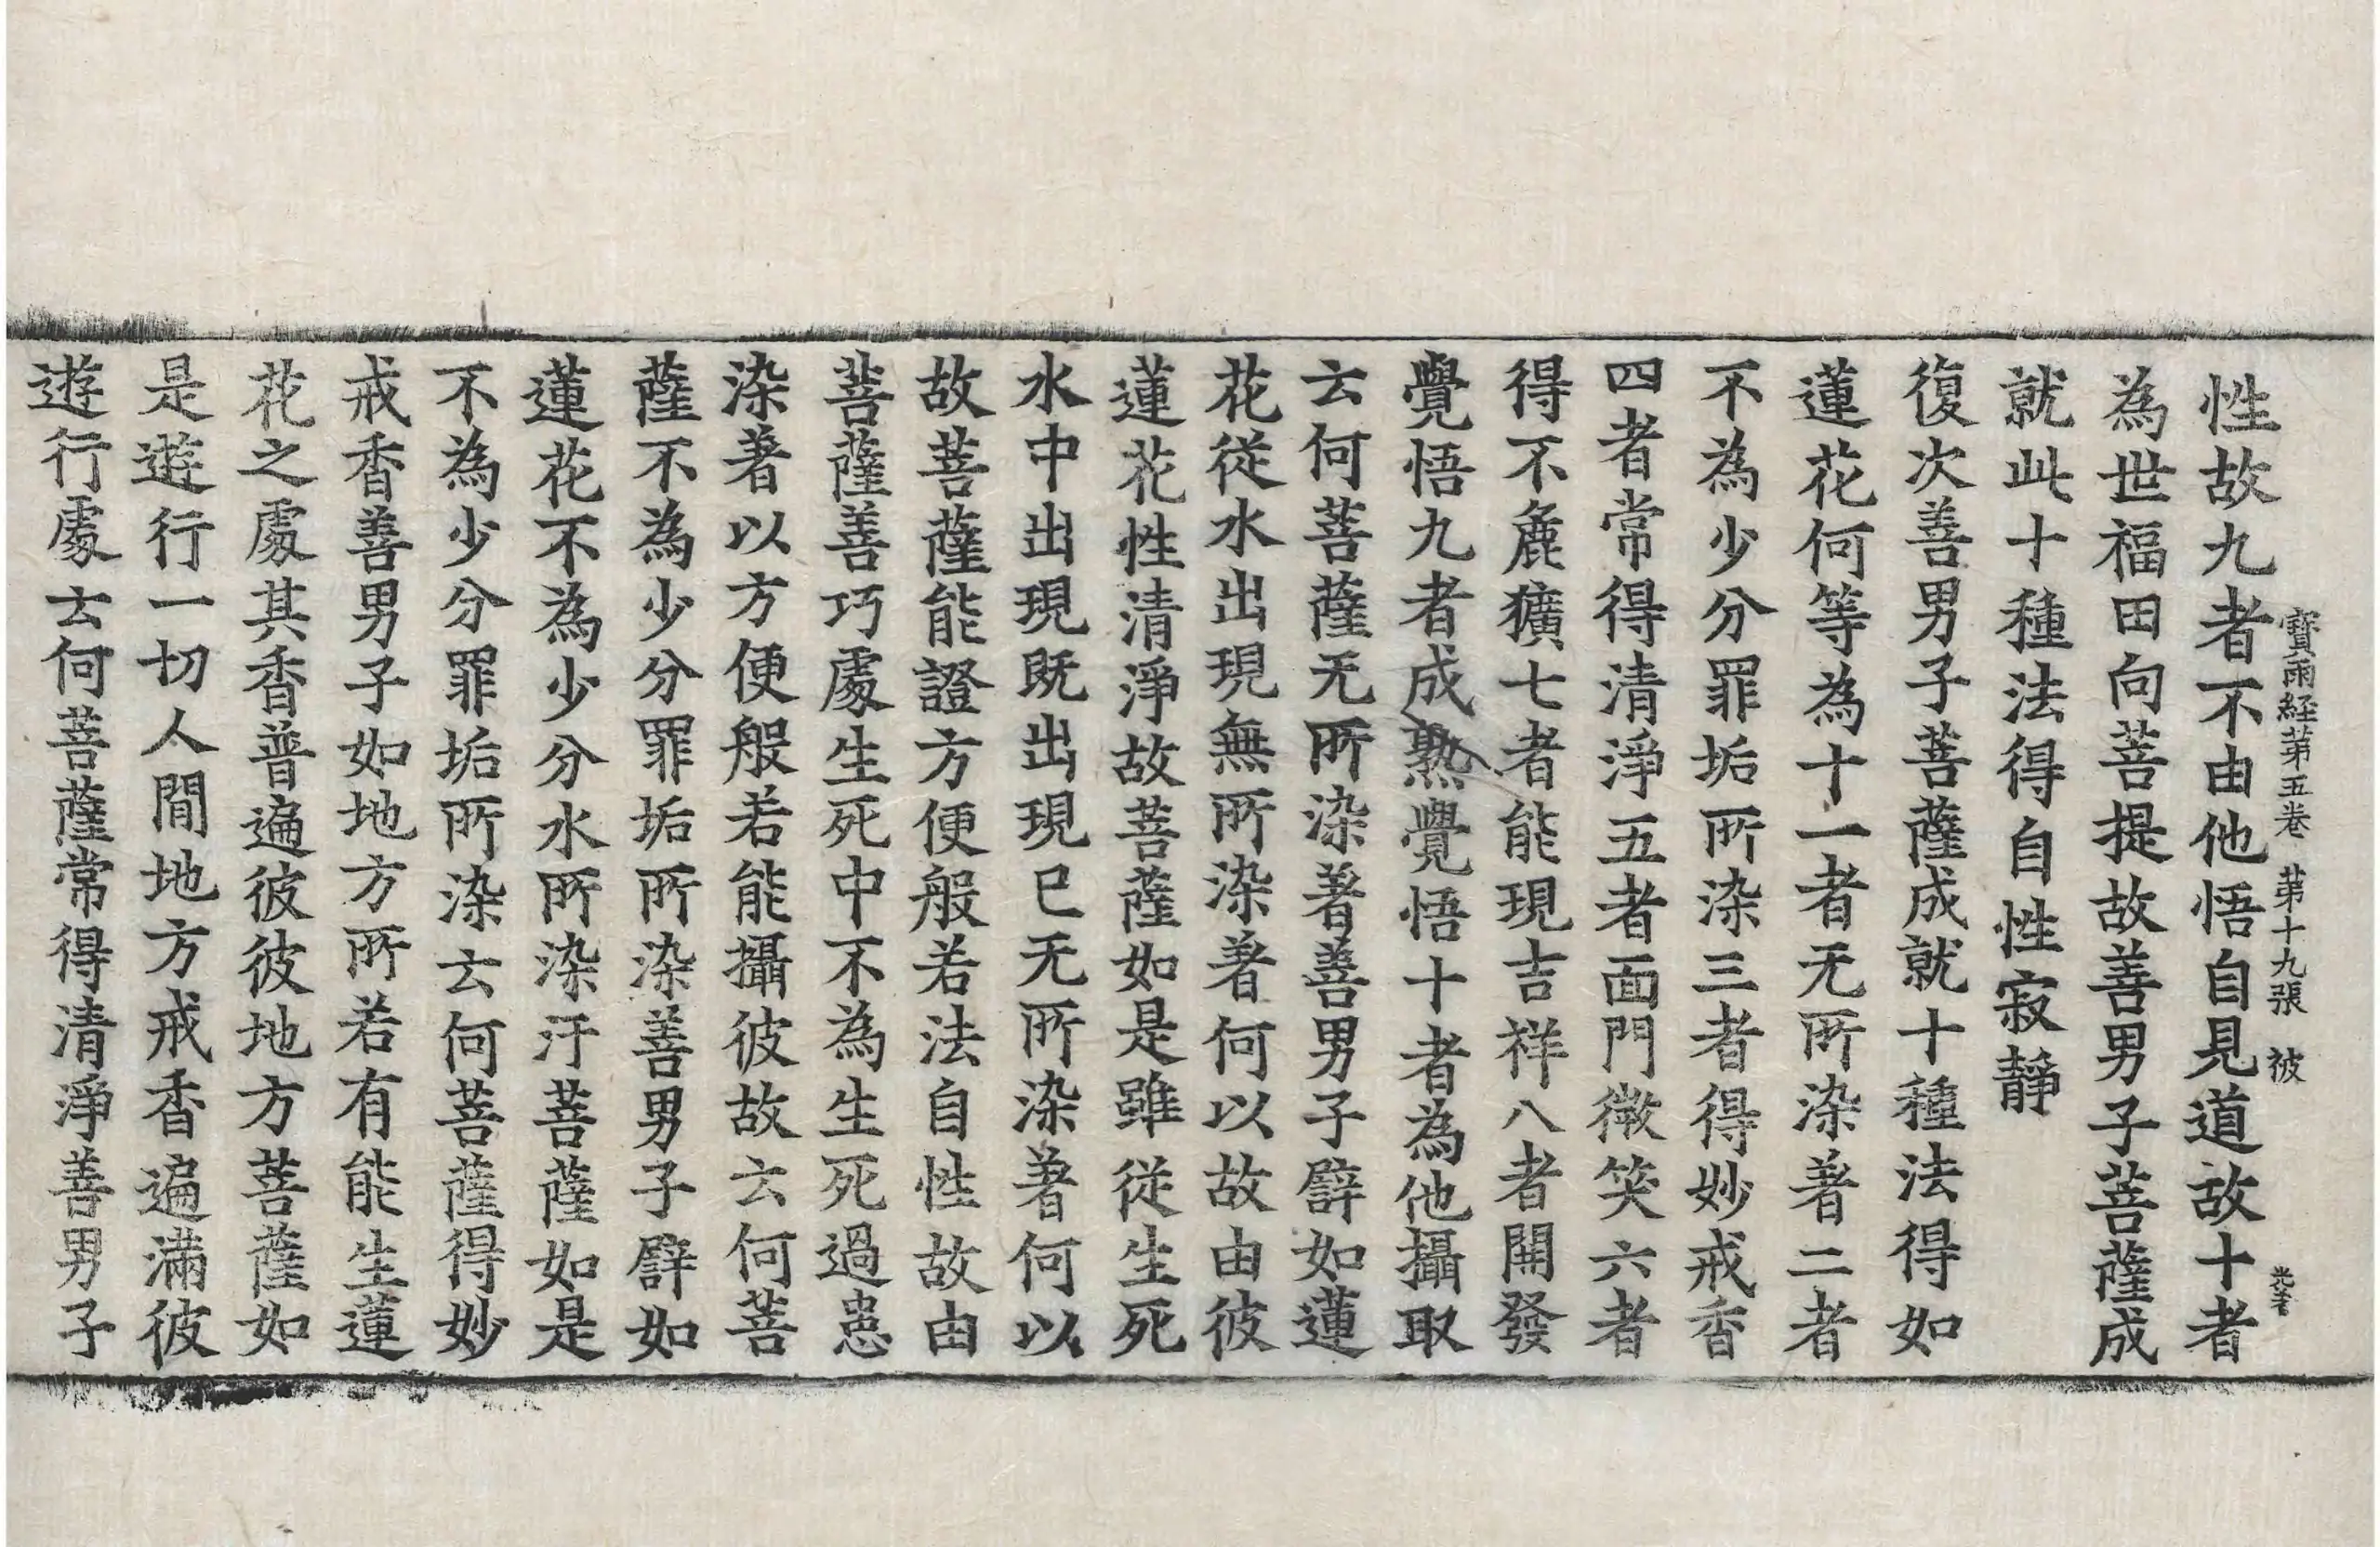 寶雨経苐五卷 苐十九張 彼
性故九者不由他悟自見道故十者
為世福田向菩提故善男子菩薩成
就此十種法得自性寂靜
復次善男子菩薩成就十種法得如
蓮花何等為十一者无所染著二者
不為少分罪垢所染三者得妙戒香
四者常得清淨五者面門微笑六者
得不麁獷七者能現吉祥八者開發
覺悟九者成熟覺悟十者為他攝取
云何菩薩无所染著善男子譬如蓮
花從水出現無所染著何以故由彼
蓮花性清淨故菩薩如是雖從生死
水中出現既出現已无所染著何以
故菩薩能證方便般若法自性故由
菩薩善巧處生死中不為生死過患
染著以方便般若能攝彼故云何菩
薩不為少分罪垢所染善男子譬如
蓮花不為少分水所染汙菩薩如是
不為少分罪垢所染云何菩薩得妙
戒香善男子如地方所若有能生蓮
花之處其香普遍彼彼地方菩薩如
是遊行一切人間地方戒香遍滿彼
遊行處云何菩薩常得清淨善男子